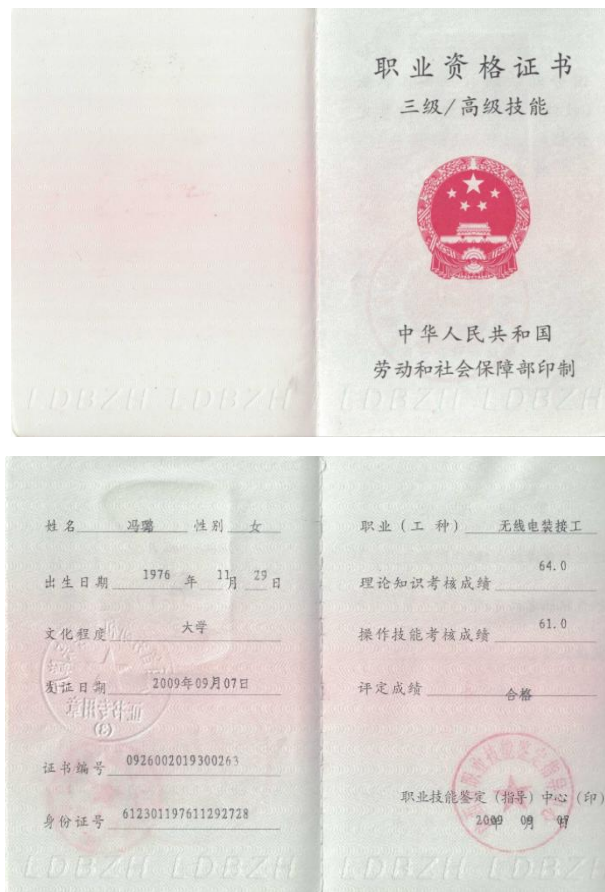 职业资格证书
三级/高级技能
中华人民共和国
劳动和社会保障部印制
LDBZH LDBZH LDBZH LDBZH
姓名 冯璐 性别 女
出生日期 1976 年 11 月 29 日
文化程度 大学
发证日期 2009年09月07日
证书编号 0926002019300263
身份证号 612301197611292728
职业(工 种) 无线电装接工
理论知识考核成绩 64.0
操作技能考核成绩 61.0
评定成绩 合格
职业技能鉴定(指导)中心(印)
2009 年 09 月 07 日
LDBZH LDBZH LDBZH LDBZH